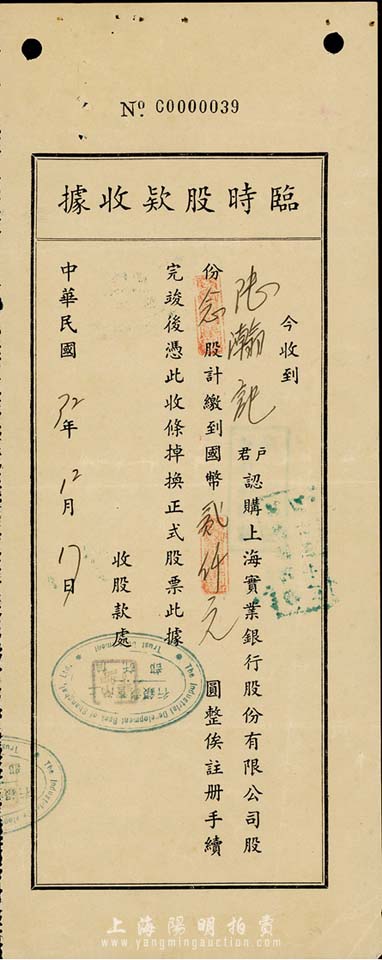 No. C0000039
臨時股款收據
今收到
張瀚記 君戶 認購上海實業銀行股份有限公司股
份 念 股計繳到國幣 貳仟元 圓整俟註册手續
完竣後憑此收條掉換正式股票此據
收股款處
中華民國 32 年 12 月 17 日
The Industrial Development Bank of Shanghai, Ltd.
Trust Department
上海陽明拍賣
www.yangmingauction.com